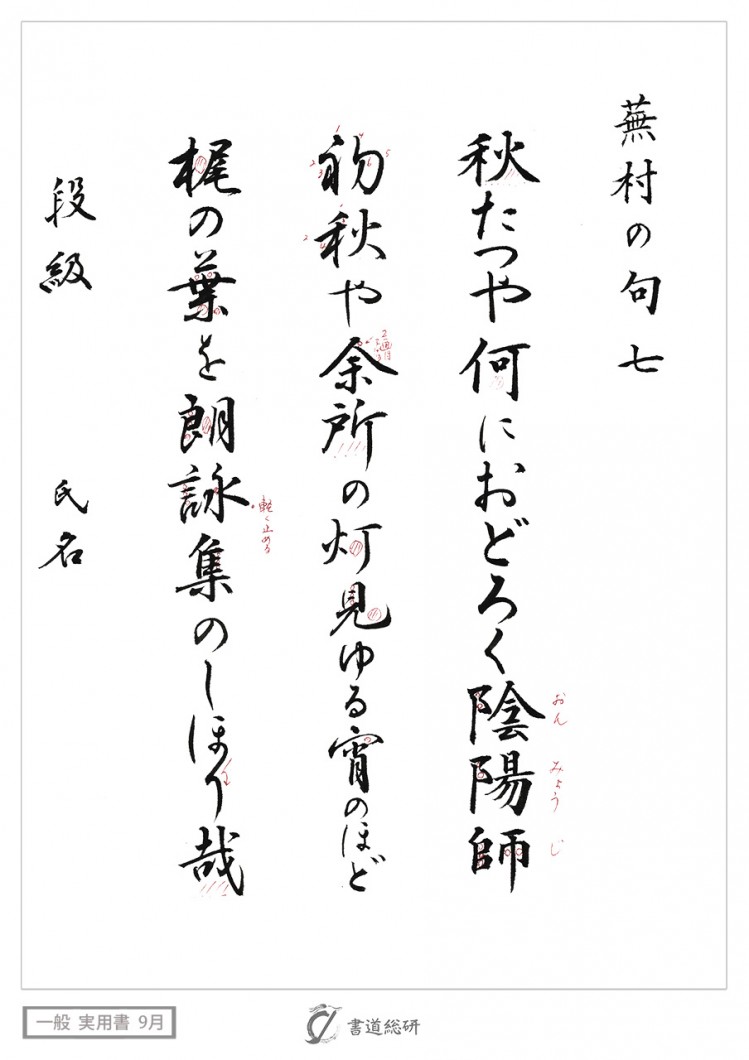 蕪村の句 七
秋たつや何におどろく陰陽師
おんみょうじ
初秋や余所の灯見ゆる宵のほど
梶の葉を朗詠集のしほり哉
軽く止める
段級 氏名
一般 実用書 9月
書道総研